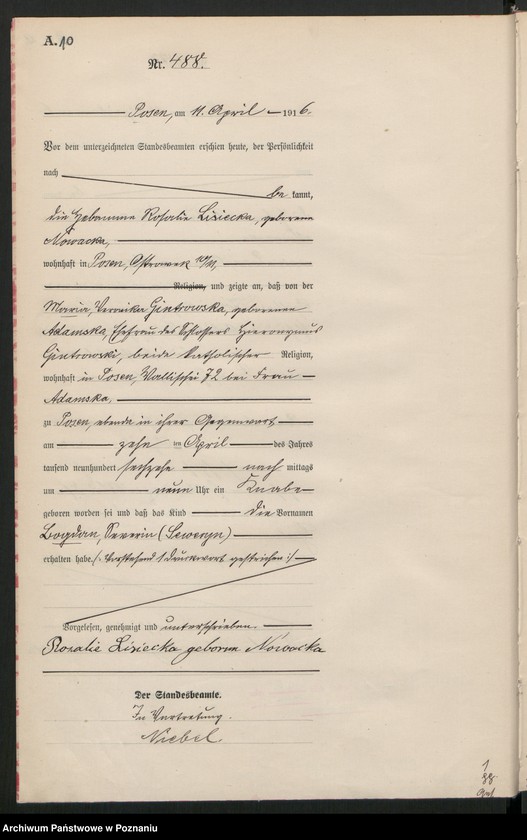 A.10
Nr. 488.
Posen, am 11. April 1916.
Vor dem unterzeichneten Standesbeamten erschien heute, der Persönlichkeit
nach
be kannt,
die Hebamme Rosalie Lisiecka, geborene
Nowacka,
wohnhaft in Posen, Ostrowek 10/11,
Religion, und zeigte an, daß von der
Maria, Veronika Gintrowska, geborenen
Adamska, Ehefrau des Schlossers Hieronymus
Gintrowski, beide katholischer Religion,
wohnhaft in Posen, Wallischei 72 bei Frau
Adamska,
zu Posen, ebenda in ihrer Gegenwart
am zehn ten April des Jahres
tausend neunhundert sechzehn nach mittags
um neun Uhr ein Knabe
geboren worden sei und daß das Kind die Vornamen
Bogdan, Severin (Seweryn)
erhalten habe. /: Vorstehend 1 Druckwort gestrichen :/
Vorgelesen, genehmigt und unterschrieben.
Rosalie Lisiecka geborene Nowacka
Der Standesbeamte.
In Vertretung.
Niebel
1
88
Archiwum Państwowe w Poznaniu